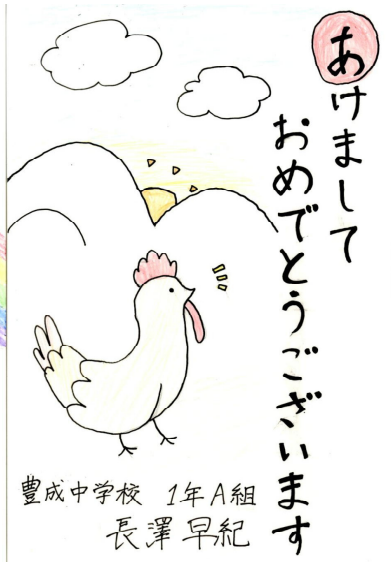 あけまして
おめでとうございます
豊成中学校 1年A組
長澤早紀